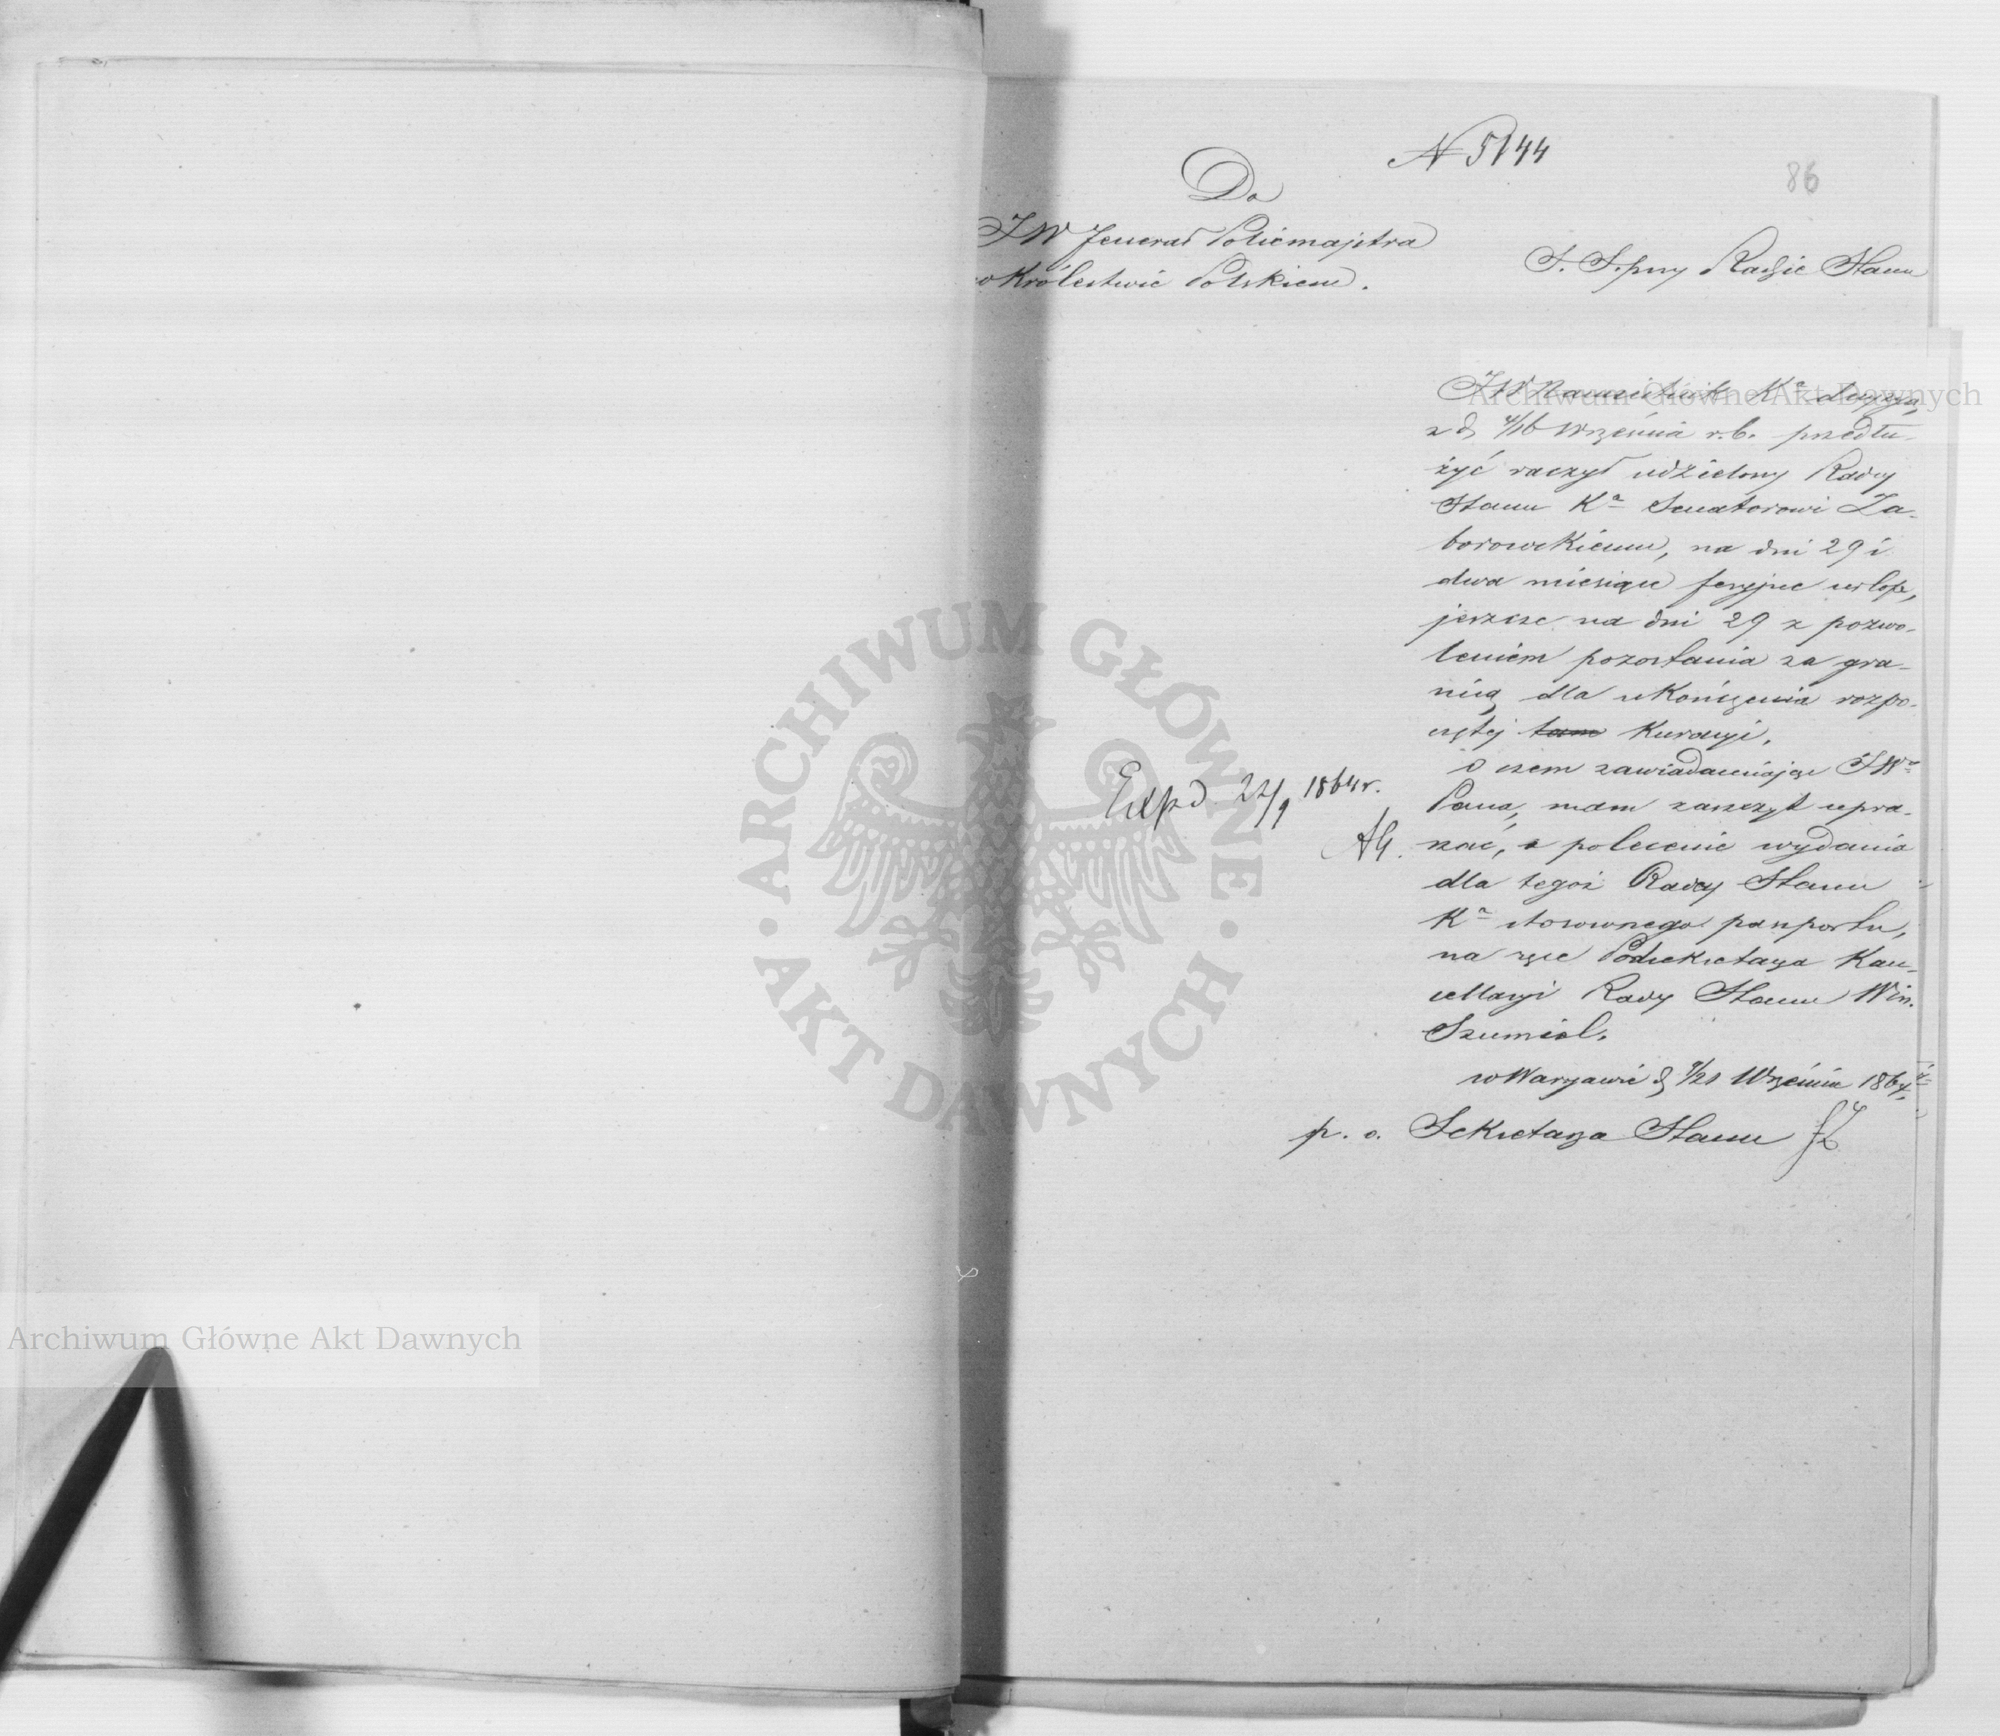 N 5144
86
Do
JW Jenerał Policmajstra
w Królestwie Polskiem.
S. S. przy Radzie Stanu
JW Namiestnik Ka decyzyą
z d. 4/16 Września r.b. przedłu-
żyć raczył udzielony Radcy
Stanu Ka Senatorowi Za-
borowskiemu, na dni 29 i
dwa miesiące feryjne urlop,
jeszcze na dni 29 z pozwo-
leniem pozostania za gra-
nicą dla ukończenia rozpo-
czętej tam kuracyi.
O czem zawiadamiając JWo
Pana, mam zaszczyt upra-
szać, o polecenie wydania
dla tegoż Radcy Stanu
Ka stosownego paszportu,
na ręce Podsekretarza Kan-
cellaryi Rady Stanu Win.
Szumiel.
w Warszawie d. 9/21 Września 1864 r.
p. o. Sekretarza Stanu
Exped 22/9 1864 r.
AG.
ARCHIWUM GŁÓWNE · AKT DAWNYCH ·
Archiwum Główne Akt Dawnych
Archiwum Główne Akt Dawnych